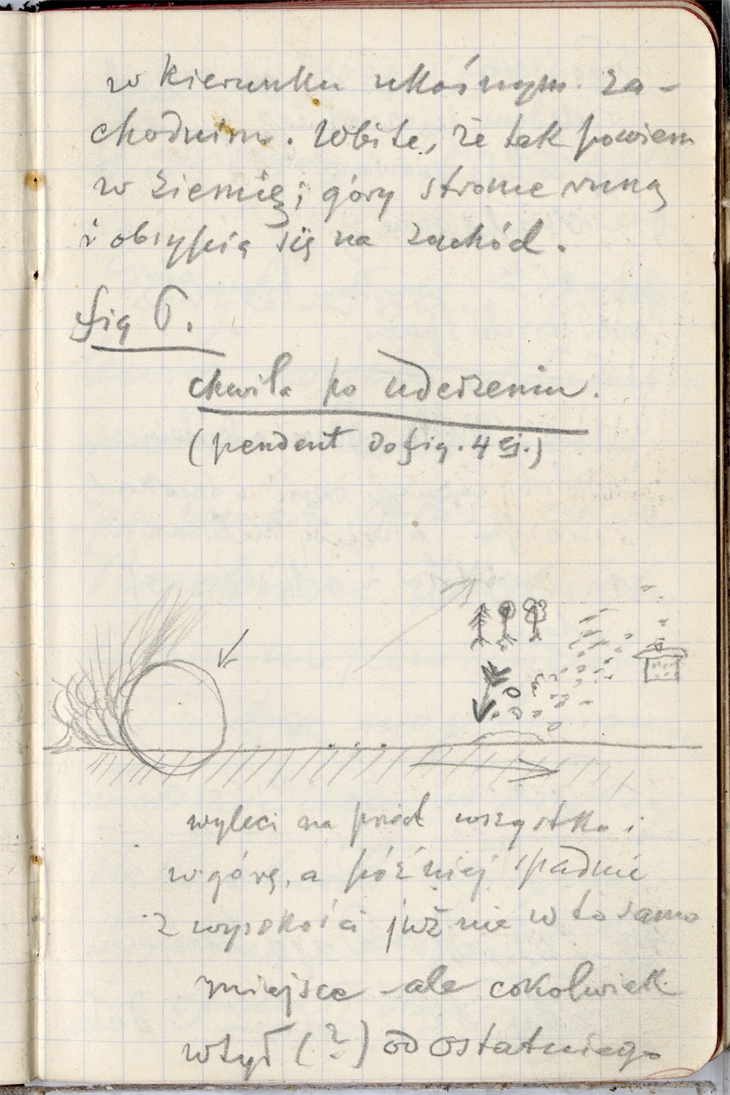 w kierunku ukośnym za-
chodnim. Wbite, że tak powiem
w ziemię; góry strome runą
i obsypią się na zachód.
fig 6.
chwila po uderzeniu.
(pendent do fig. 4 ej.)
wyleci na przód wszystko i
w górę, a później spadnie
z wysokości już nie w to samo
miejsce ale cokolwiek
wtył (?) od ostatniego